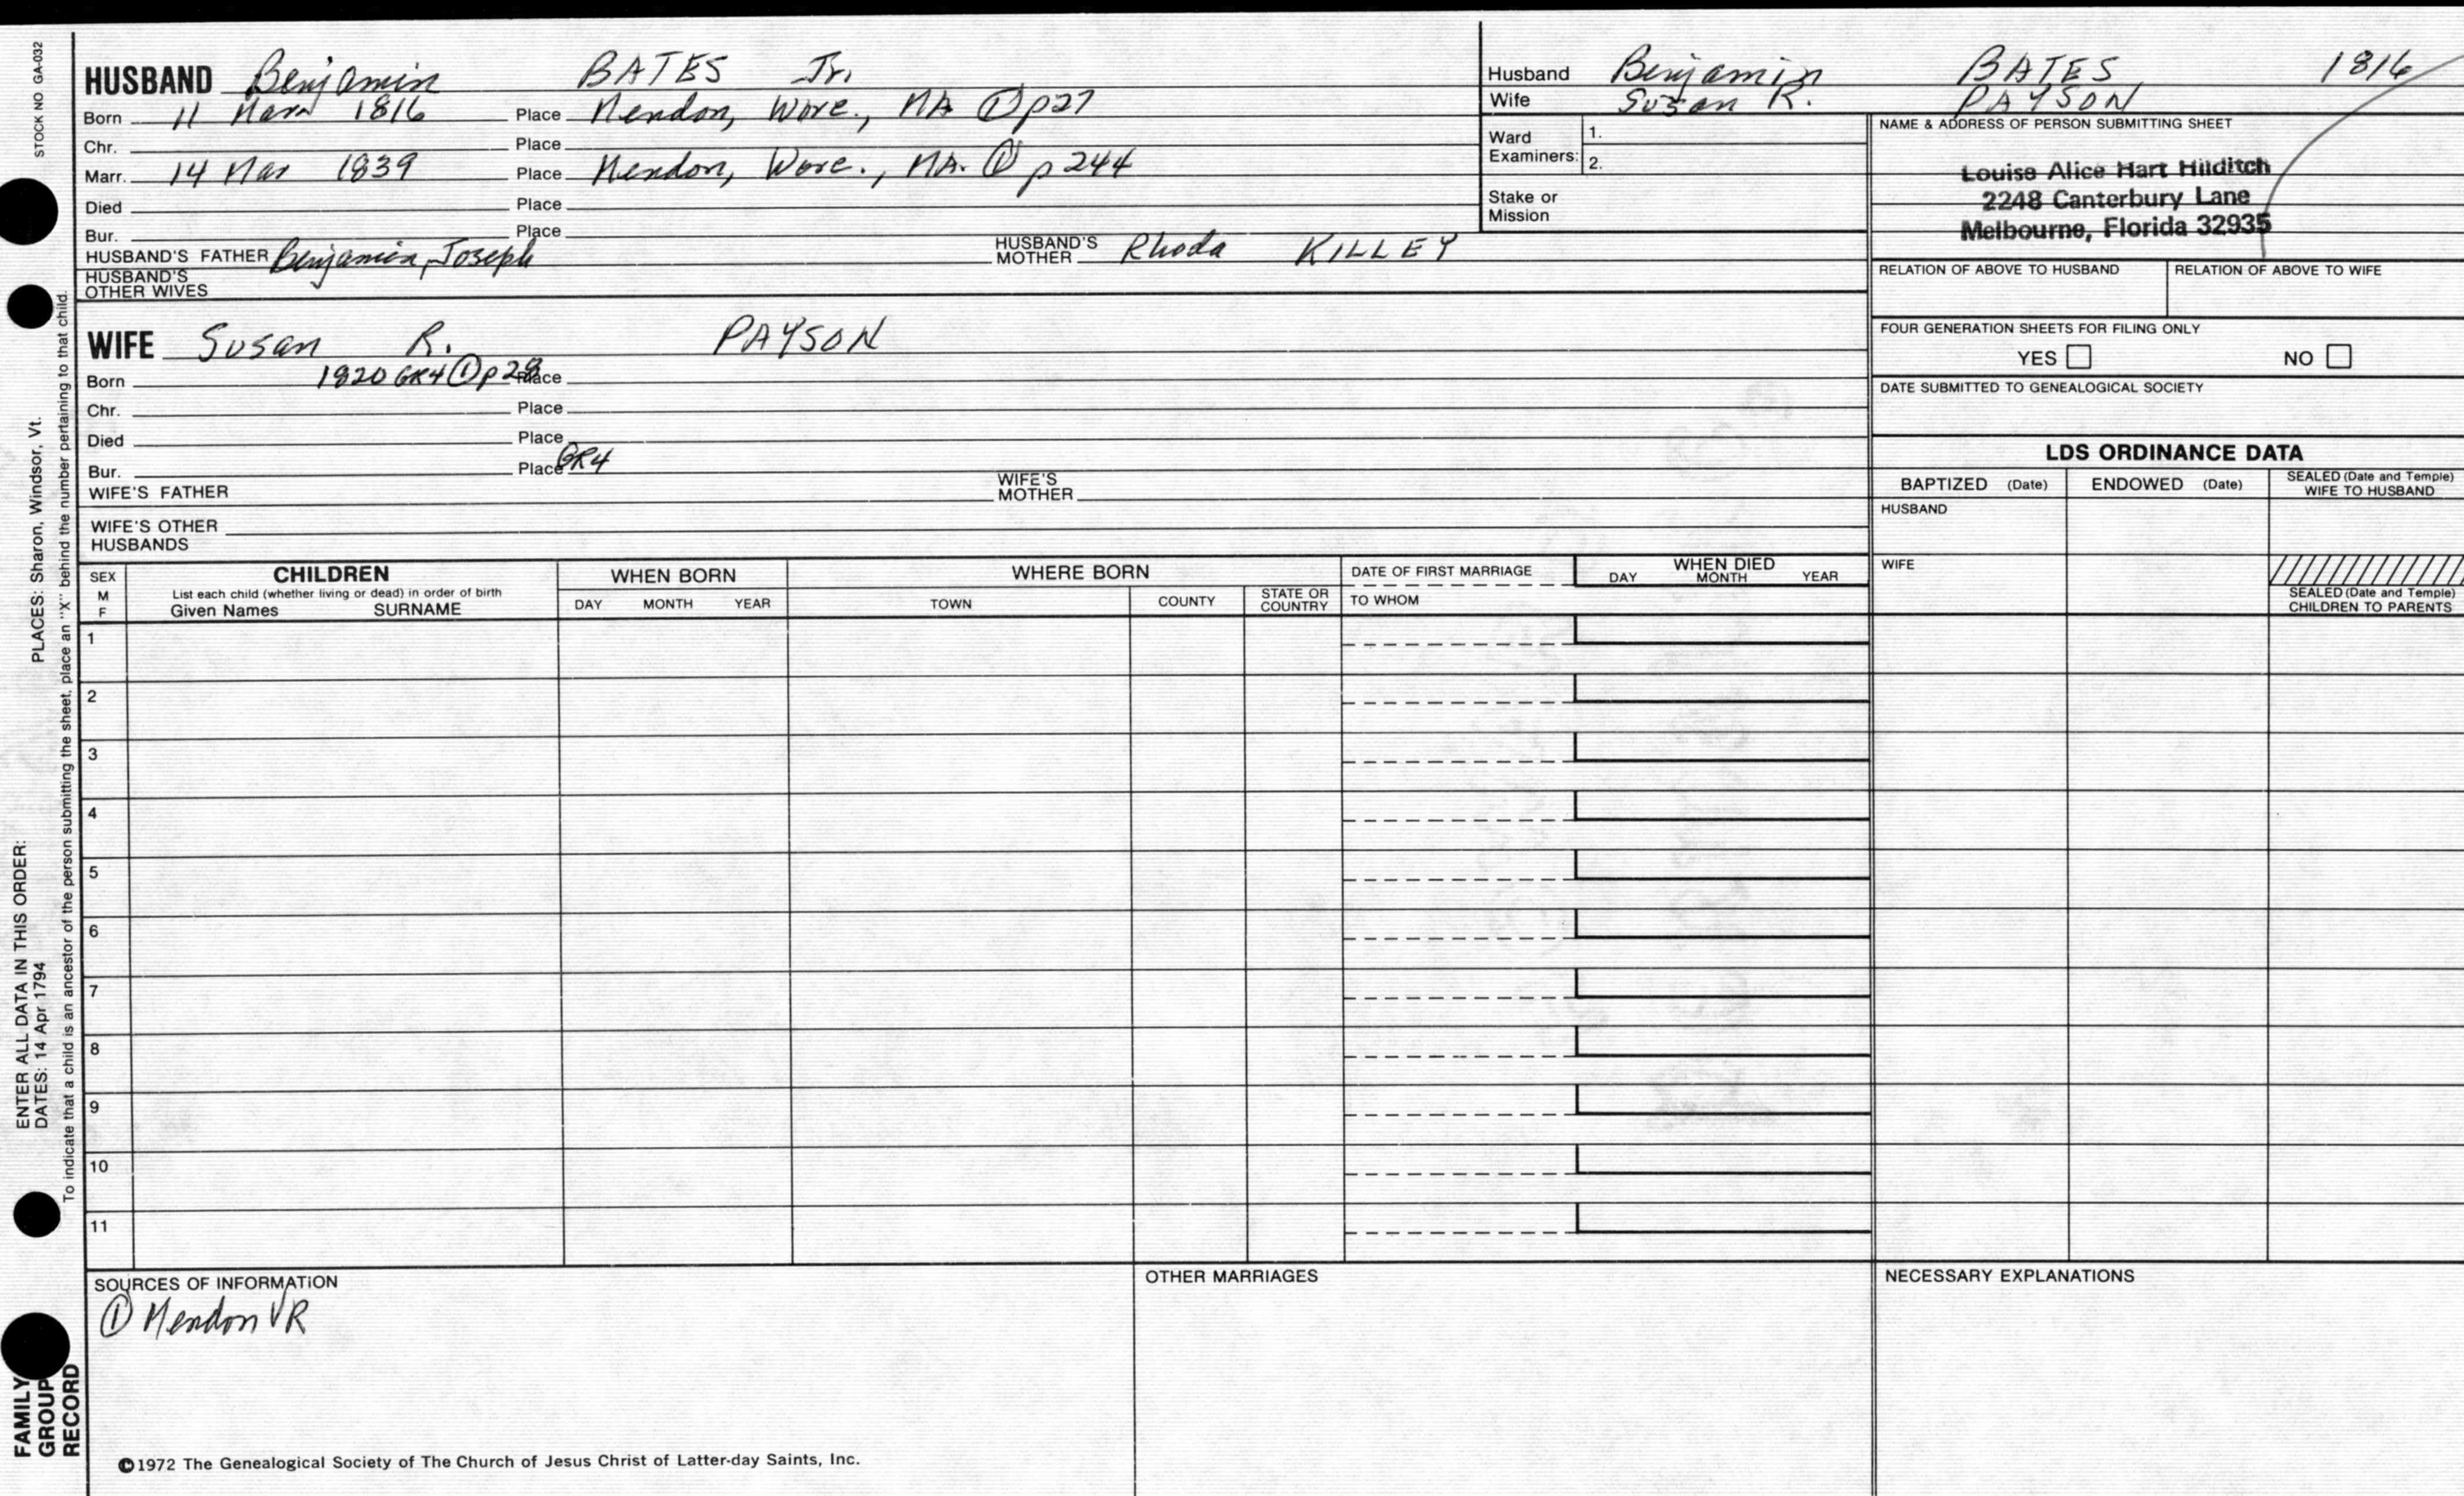 STOCK NO GA-032
HUSBAND Benjamin BATES Jr.
Born 11 Mar 1816 Place Mendon, Worc., MA ① p27
Chr. Place
Marr. 14 Mar 1839 Place Mendon, Worc., MA. ① p 244
Died Place
Bur. Place
HUSBAND'S FATHER Benjamin, Joseph HUSBAND'S MOTHER Rhoda KILLEY
HUSBAND'S OTHER WIVES
Husband Benjamin BATES 1816
Wife Susan R. PAYSON
Ward Examiners: 1.
2.
Stake or Mission
NAME & ADDRESS OF PERSON SUBMITTING SHEET
Louise Alice Hart Hilditch
2248 Canterbury Lane
Melbourne, Florida 32935
RELATION OF ABOVE TO HUSBAND RELATION OF ABOVE TO WIFE
FOUR GENERATION SHEETS FOR FILING ONLY
YES NO
DATE SUBMITTED TO GENEALOGICAL SOCIETY
WIFE Susan R. PAYSON
Born 1820 GR4 ① p28 Place
Chr. Place
Died Place
Bur. Place GR4
WIFE'S FATHER WIFE'S MOTHER
WIFE'S OTHER HUSBANDS
LDS ORDINANCE DATA
BAPTIZED (Date) ENDOWED (Date) SEALED (Date and Temple) WIFE TO HUSBAND
HUSBAND
WIFE
SEALED (Date and Temple) CHILDREN TO PARENTS
SEX M F
CHILDREN
List each child (whether living or dead) in order of birth
Given Names SURNAME
WHEN BORN
DAY MONTH YEAR
WHERE BORN
TOWN COUNTY STATE OR COUNTRY
DATE OF FIRST MARRIAGE
TO WHOM
WHEN DIED
DAY MONTH YEAR
1
2
3
4
5
6
7
8
9
10
11
SOURCES OF INFORMATION
① Mendon VR
OTHER MARRIAGES
NECESSARY EXPLANATIONS
©1972 The Genealogical Society of The Church of Jesus Christ of Latter-day Saints, Inc.
ENTER ALL DATA IN THIS ORDER:
DATES: 14 Apr 1794 PLACES: Sharon, Windsor, Vt.
To indicate that a child is an ancestor of the person submitting the sheet, place an "X" behind the number pertaining to that child.
FAMILY
GROUP
RECORD